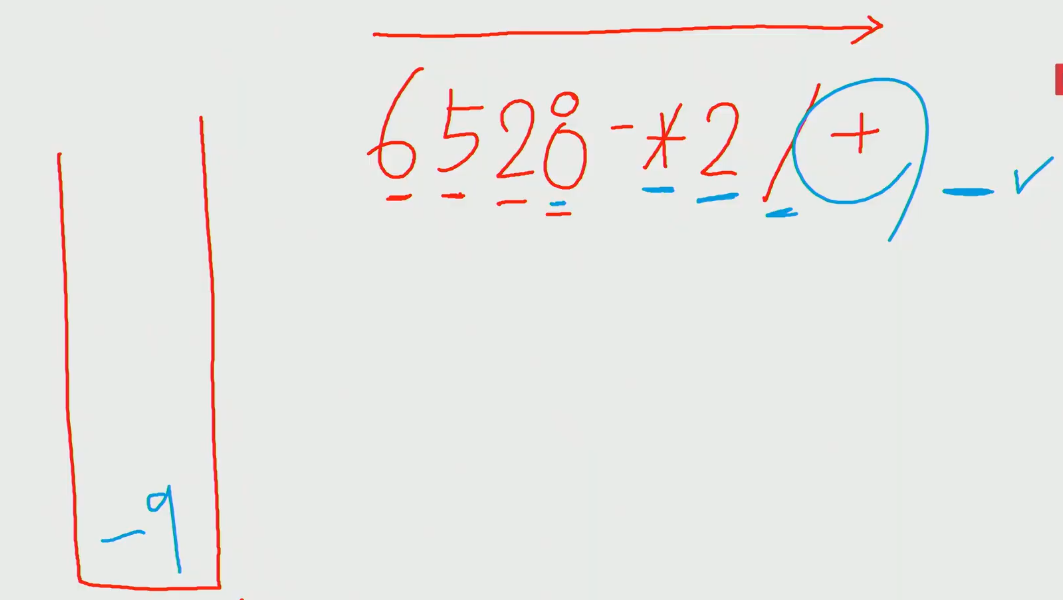 6528-*2/+
-9